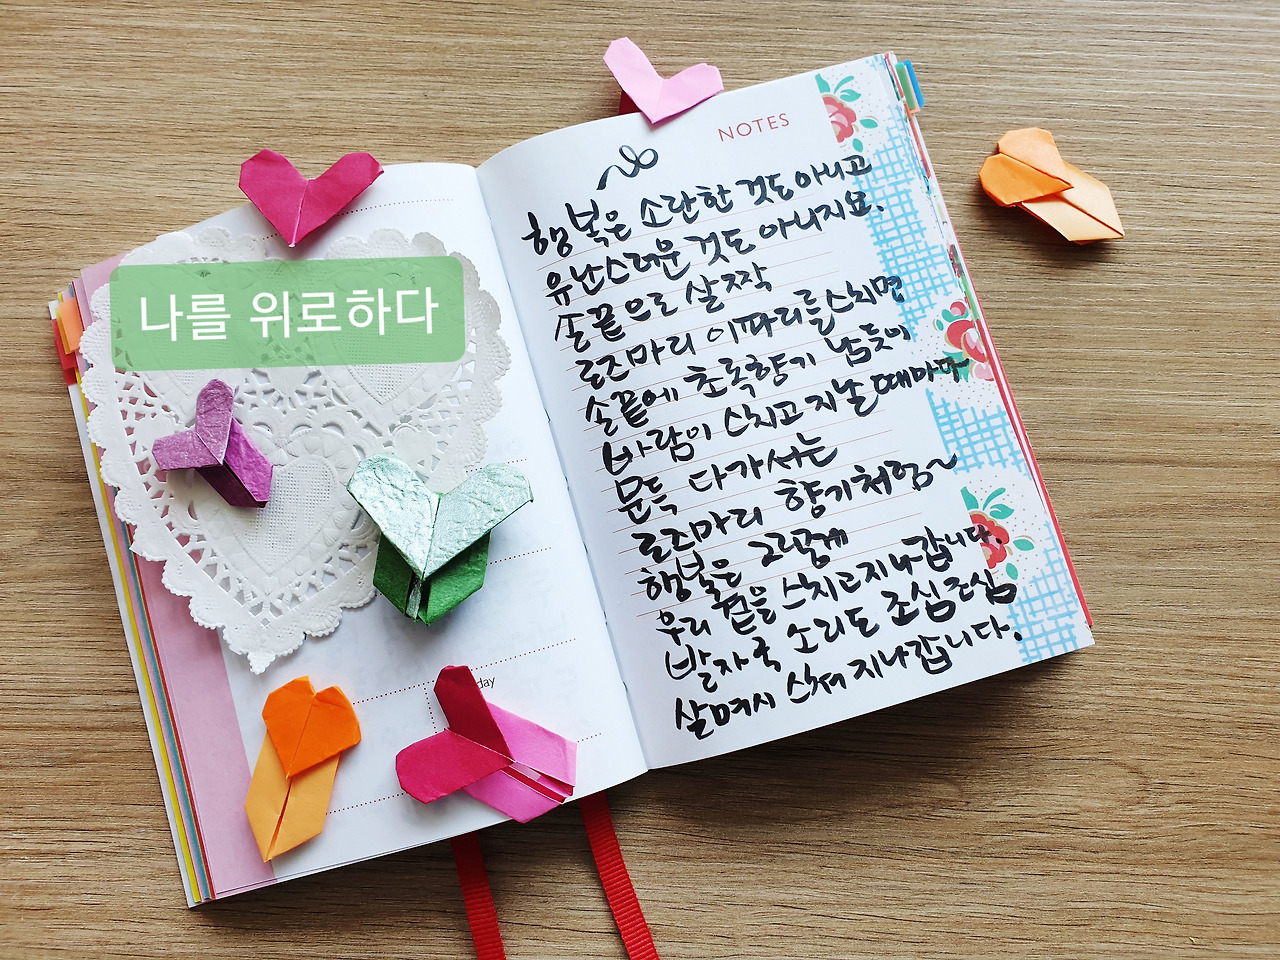 나를 위로하다
day
NOTES
행복은 소란한 것도 아니고
유난스러운 것도 아니지요.
손끝으로 살짝
로즈마리 이파리를 스치면
손끝에 초록향기 남듯이
바람이 스치고 지날 때마다
문득 다가서는
로즈마리 향기처럼~
행복은 그렇게
우리 곁을 스치고 지나갑니다.
발자국 소리도 조심조심
살며시 스쳐 지나갑니다.